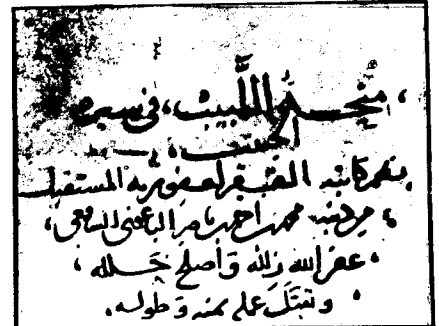 ، منحة اللبيب، في سيرة
الحبيب،
بقلم كاتبه الفقير لعفو ربه المستقيل
من ذنبه محمد بن احمد بن ناصر الباعوني الشافعي،
، غفر الله زلله وأصلح خلله ،
، وتقبل عمله بمنه وطوله،